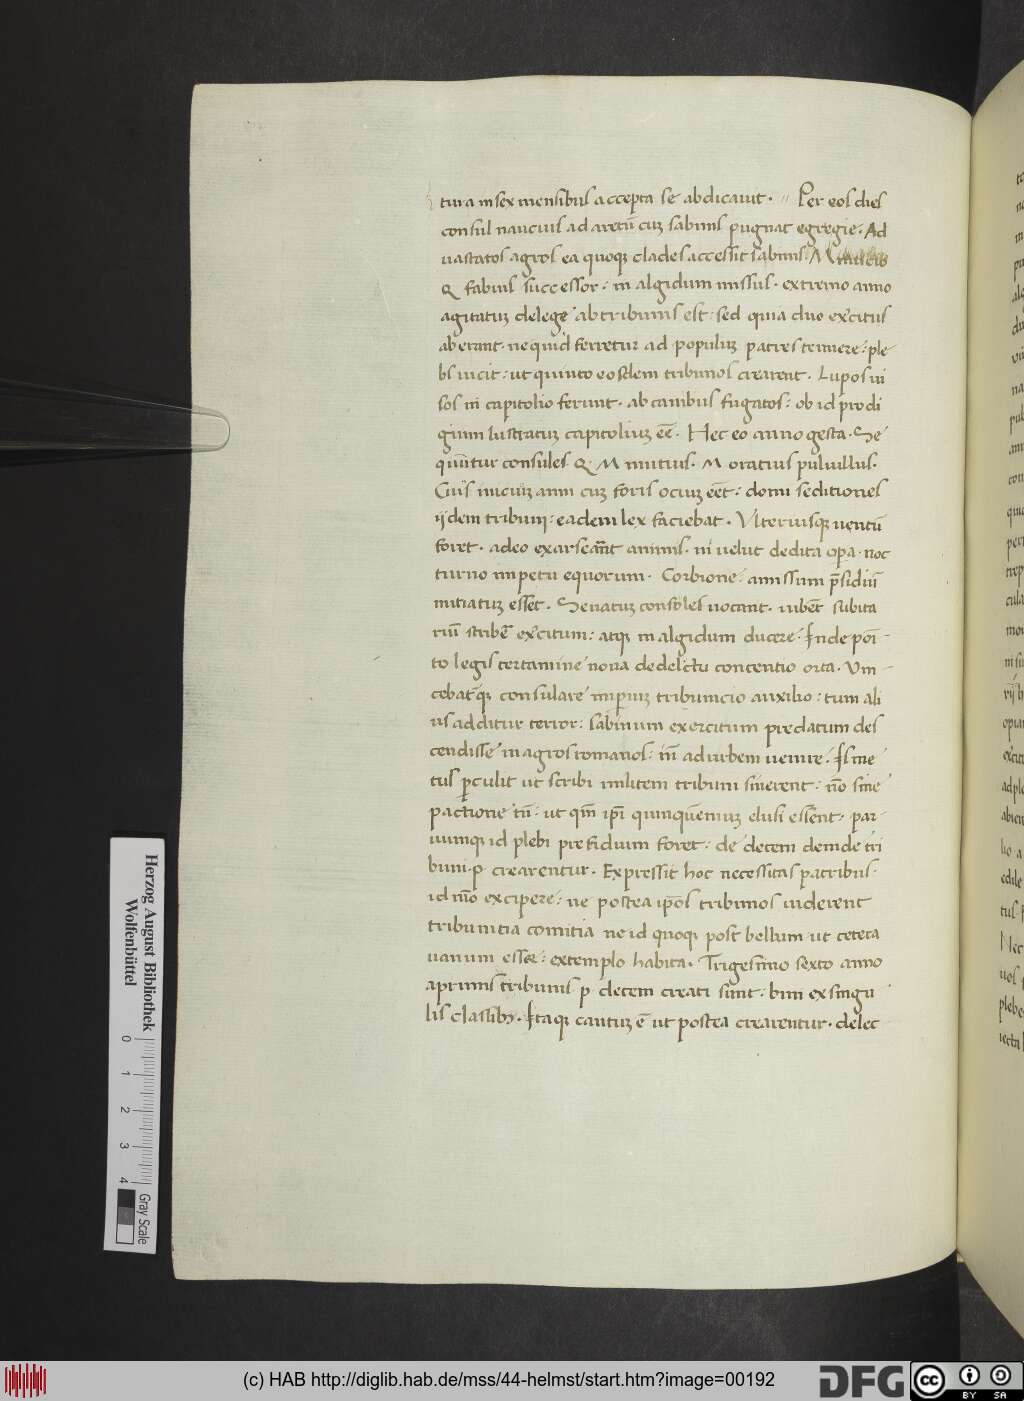 tura in sex mensibus accepta se abdicauit. // Per eos dies
consul naucius ad aretũ cuȝ sabinis pugnat egregie. Ad
uastatos agros ea quoqȝ clades accessit sabinis. Minucio
Q fabius successor: in algidum missus. extremo anno
agitatuȝ delege ab tribunis est: sed quia duo exc̃itus
aberant. ne quid ferretur ad populuȝ patres tenuere: ple
bs uicit: ut quinto eosdem tribunos crearent. Lupos ui
sos in capitolio ferunt. ab canibus fugatos: ob id prodi
gium lustratuȝ capitoliuȝ eẽ. Hec eo anno gesta. Se
quũtur consules Q. M minus. M oratius puluillus.
Cuĩs inicuiȝ anni cuȝ foris ociuȝ eẽt: domi seditiones
ijdem tribuni: eadem lex faciebat. Vlteriusqȝ uentũ
foret. adeo exarserãt animis. ni uelut dedita opa. noc
turno impetu equorum. Corbione: amissum p̃sidiũ
nũtiatuȝ esset. Senatuȝ consules uocant. iubẽt subita
riũ scribẽ exc̃itum: atqȝ in algidum ducere. Inde põi
to legis certamine noua de delectu contentio orta. Vin
cebat̃qȝ consulare impiuȝ tribunicio auxilio: tum ali
us additur terror: sabinum exercitum predatum des
cendisse in agros romanos: in̄ ad urbem uenire. Is me
tus p̱culit ut scribi militem tribuni sinerent: nõ sine
pactione tñ: ut qm̃ ip̃i quinquenniuȝ elusi essent. par
uumqȝ id plebi presidium foret: de decem deinde tri
buni. p̱ crearentur. Expressit hoc necessitas patribus.
id mõ excipere: ne postea ip̃os tribunos uiderent
tribunitia comitia ne id quoqȝ post bellum ut cetera
uanum esset: extemplo habita. Trigesimo sexto anno
a primis tribunis p̱ decem creati sunt: bini ex singu
lis classibȝ. Itaqȝ cautuȝ ẽ ut postea crearentur. delec
Herzog August Bibliothek
Wolfenbüttel
0 1 2 3 4
Gray Scale
(c) HAB http://diglib.hab.de/mss/44-helmst/start.htm?image=00192
DFG
cc BY SA